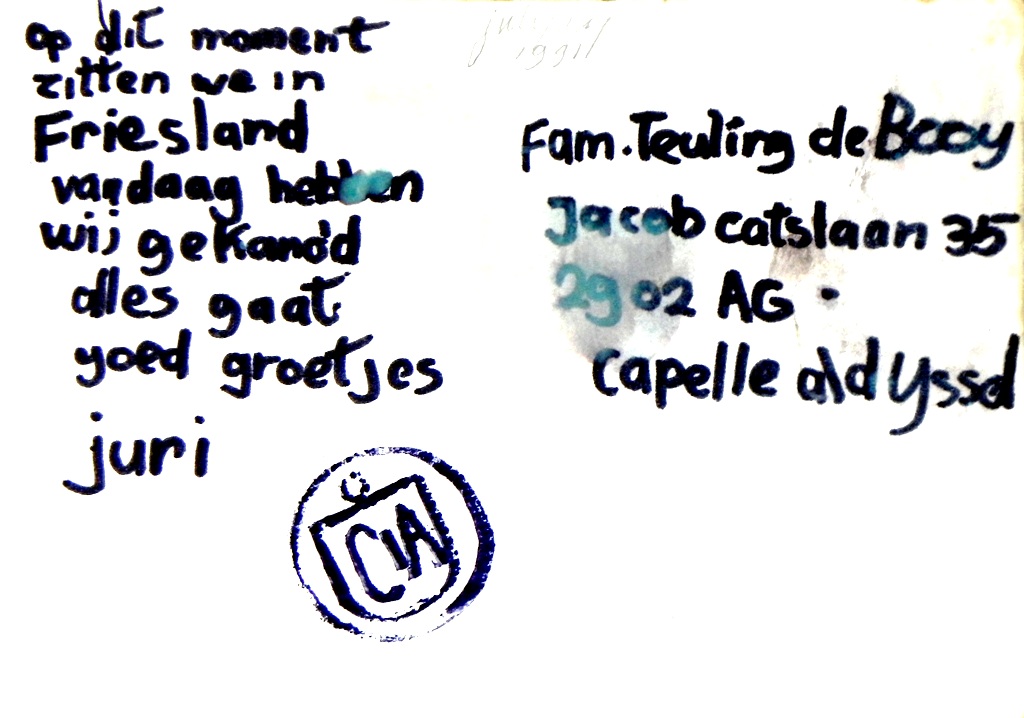 op dit moment
zitten we in
Friesland
vandaag hebben
wij gekano'd
alles gaat
goed groetjes
juri
Fam. Teuling de Booy
Jacob catslaan 35
2902 AG
Capelle a/d Yssel
CIA